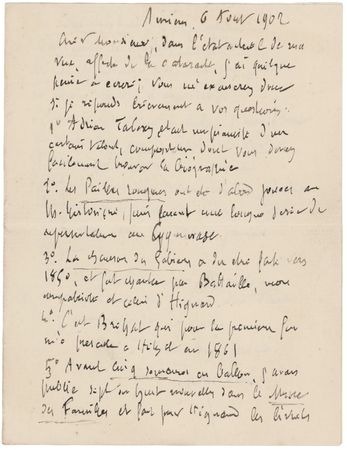 Amiens, 6 Aout 1902
Cher Monsieur, dans l'état actuel de ma
vue, affectée de la cataracte, j'ai quelque
peine à écrire; vous m'excuserez donc
si je réponds brièvement à vos questions.
1° Adrien Talexy était un pianiste d'un
certain talent, compositeur dont vous devez
facilement trouver la biographie
2° Les Pailles rompues ont été d'abord jouées au
Th. Historique, puis durant une longue série de
représentations au Gymnase.
3° La chanson du Gabier a dû être faite vers
1850, et fut chantée par Bataille,
compatriote et celui d'Hignard.
4° C'est Bréhat qui pour la première fois
m'a présenté à Hetzel en 1861
5° Avant Cinq semaines en Ballon, j'avais
publié sept ou huit nouvelles dans le Musée
des Familles et fait pour Hignard les livrets